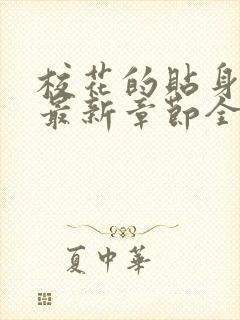 校花的貼身
最新章節全
夏中華